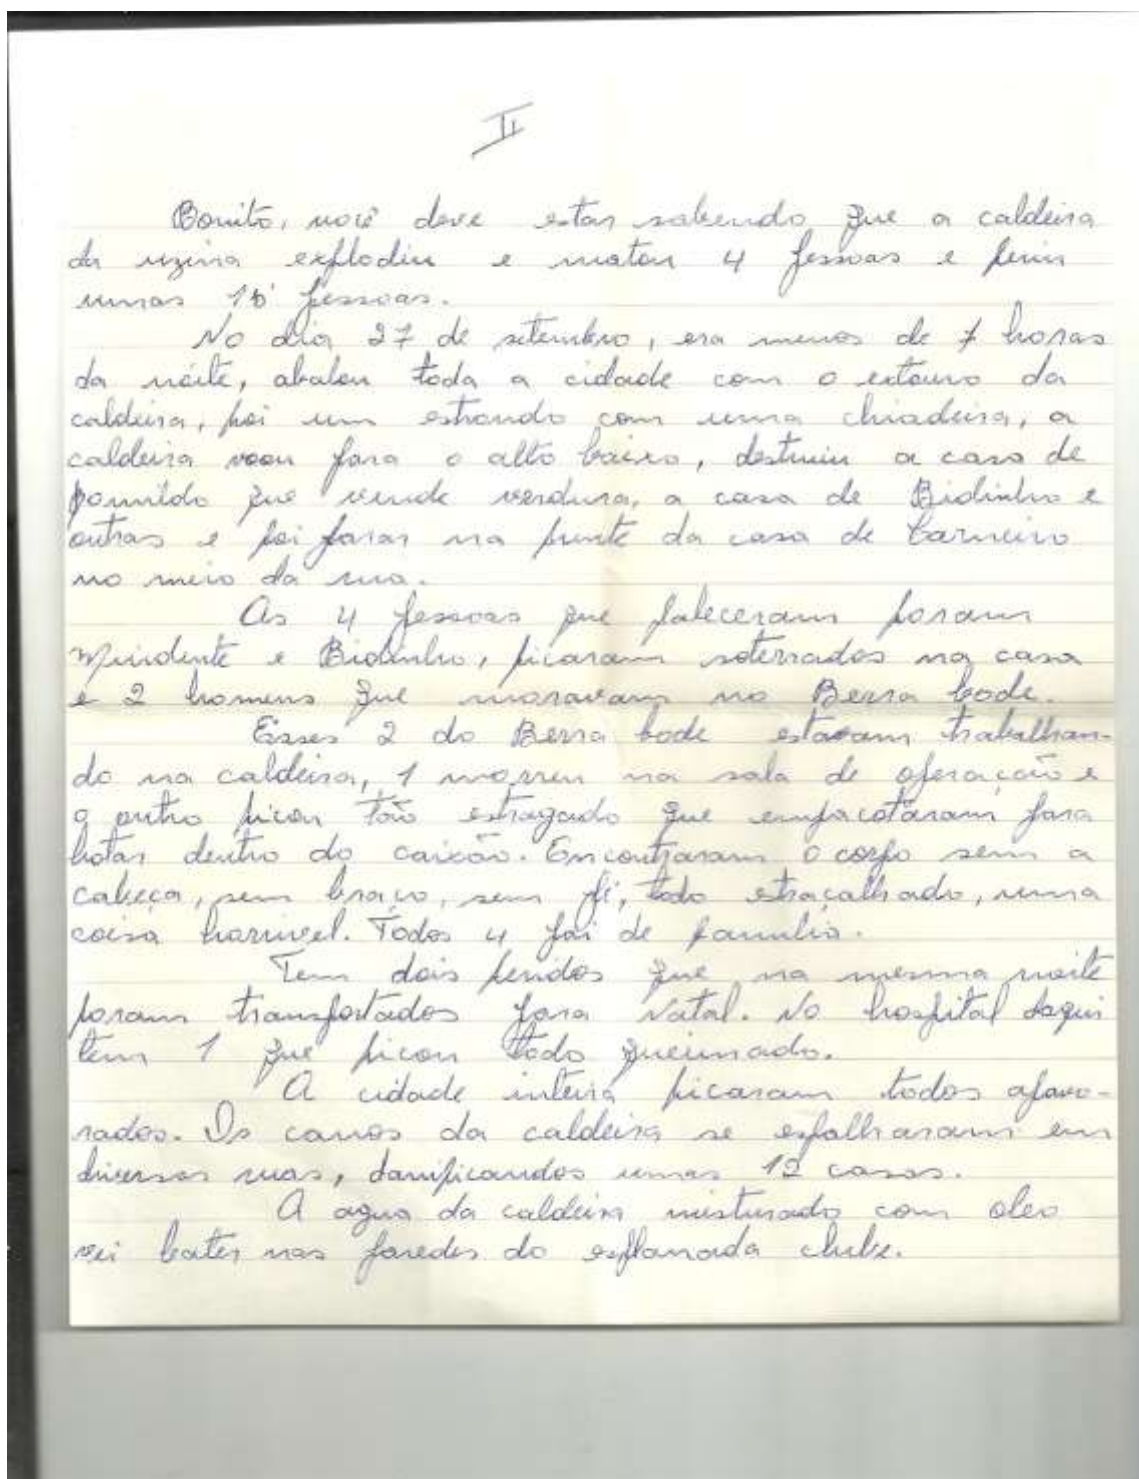 II
Bonito, você deve estar sabendo que a caldeira
da uzina explodiu e matou 4 pessoas e feriu
umas 15 pessoas.
No dia 27 de setembro, era menos de 7 horas
da noite, abalou toda a cidade com o estouro da
caldeira, foi um estrondo com uma chiadeira, a
caldeira voou para o alto baixo, destruiu a casa de
que vende verdura, a casa de Bidinho e
outras e foi parar na frente da casa de Carneiro
no meio da rua.
As 4 pessoas que faleceram foram
e Bidinho, ficaram soterrados na casa
e 2 homens que moravam no Berra bode.
Esses 2 do Berra bode estavam trabalhan-
do na caldeira, 1 morreu na sala de operação e
o outro ficou tão estragado que empacotaram para
botar dentro do caixão. Encontraram o corpo sem a
cabeça, sem braço, sem pé, todo estraçalhado, uma
coisa horrivel. Todos 4 pai de familia.
Tem dois feridos que na mesma noite
foram transportados para Natal. No hospital daqui
tem 1 que ficou todo queimado.
A cidade inteira ficaram todos apavo-
rados. Os canos da caldeira se espalharam em
diversas ruas, danificandos umas 12 casas.
A agua da caldeira misturado com oleo
vei bater nas paredes do esplanada clube.